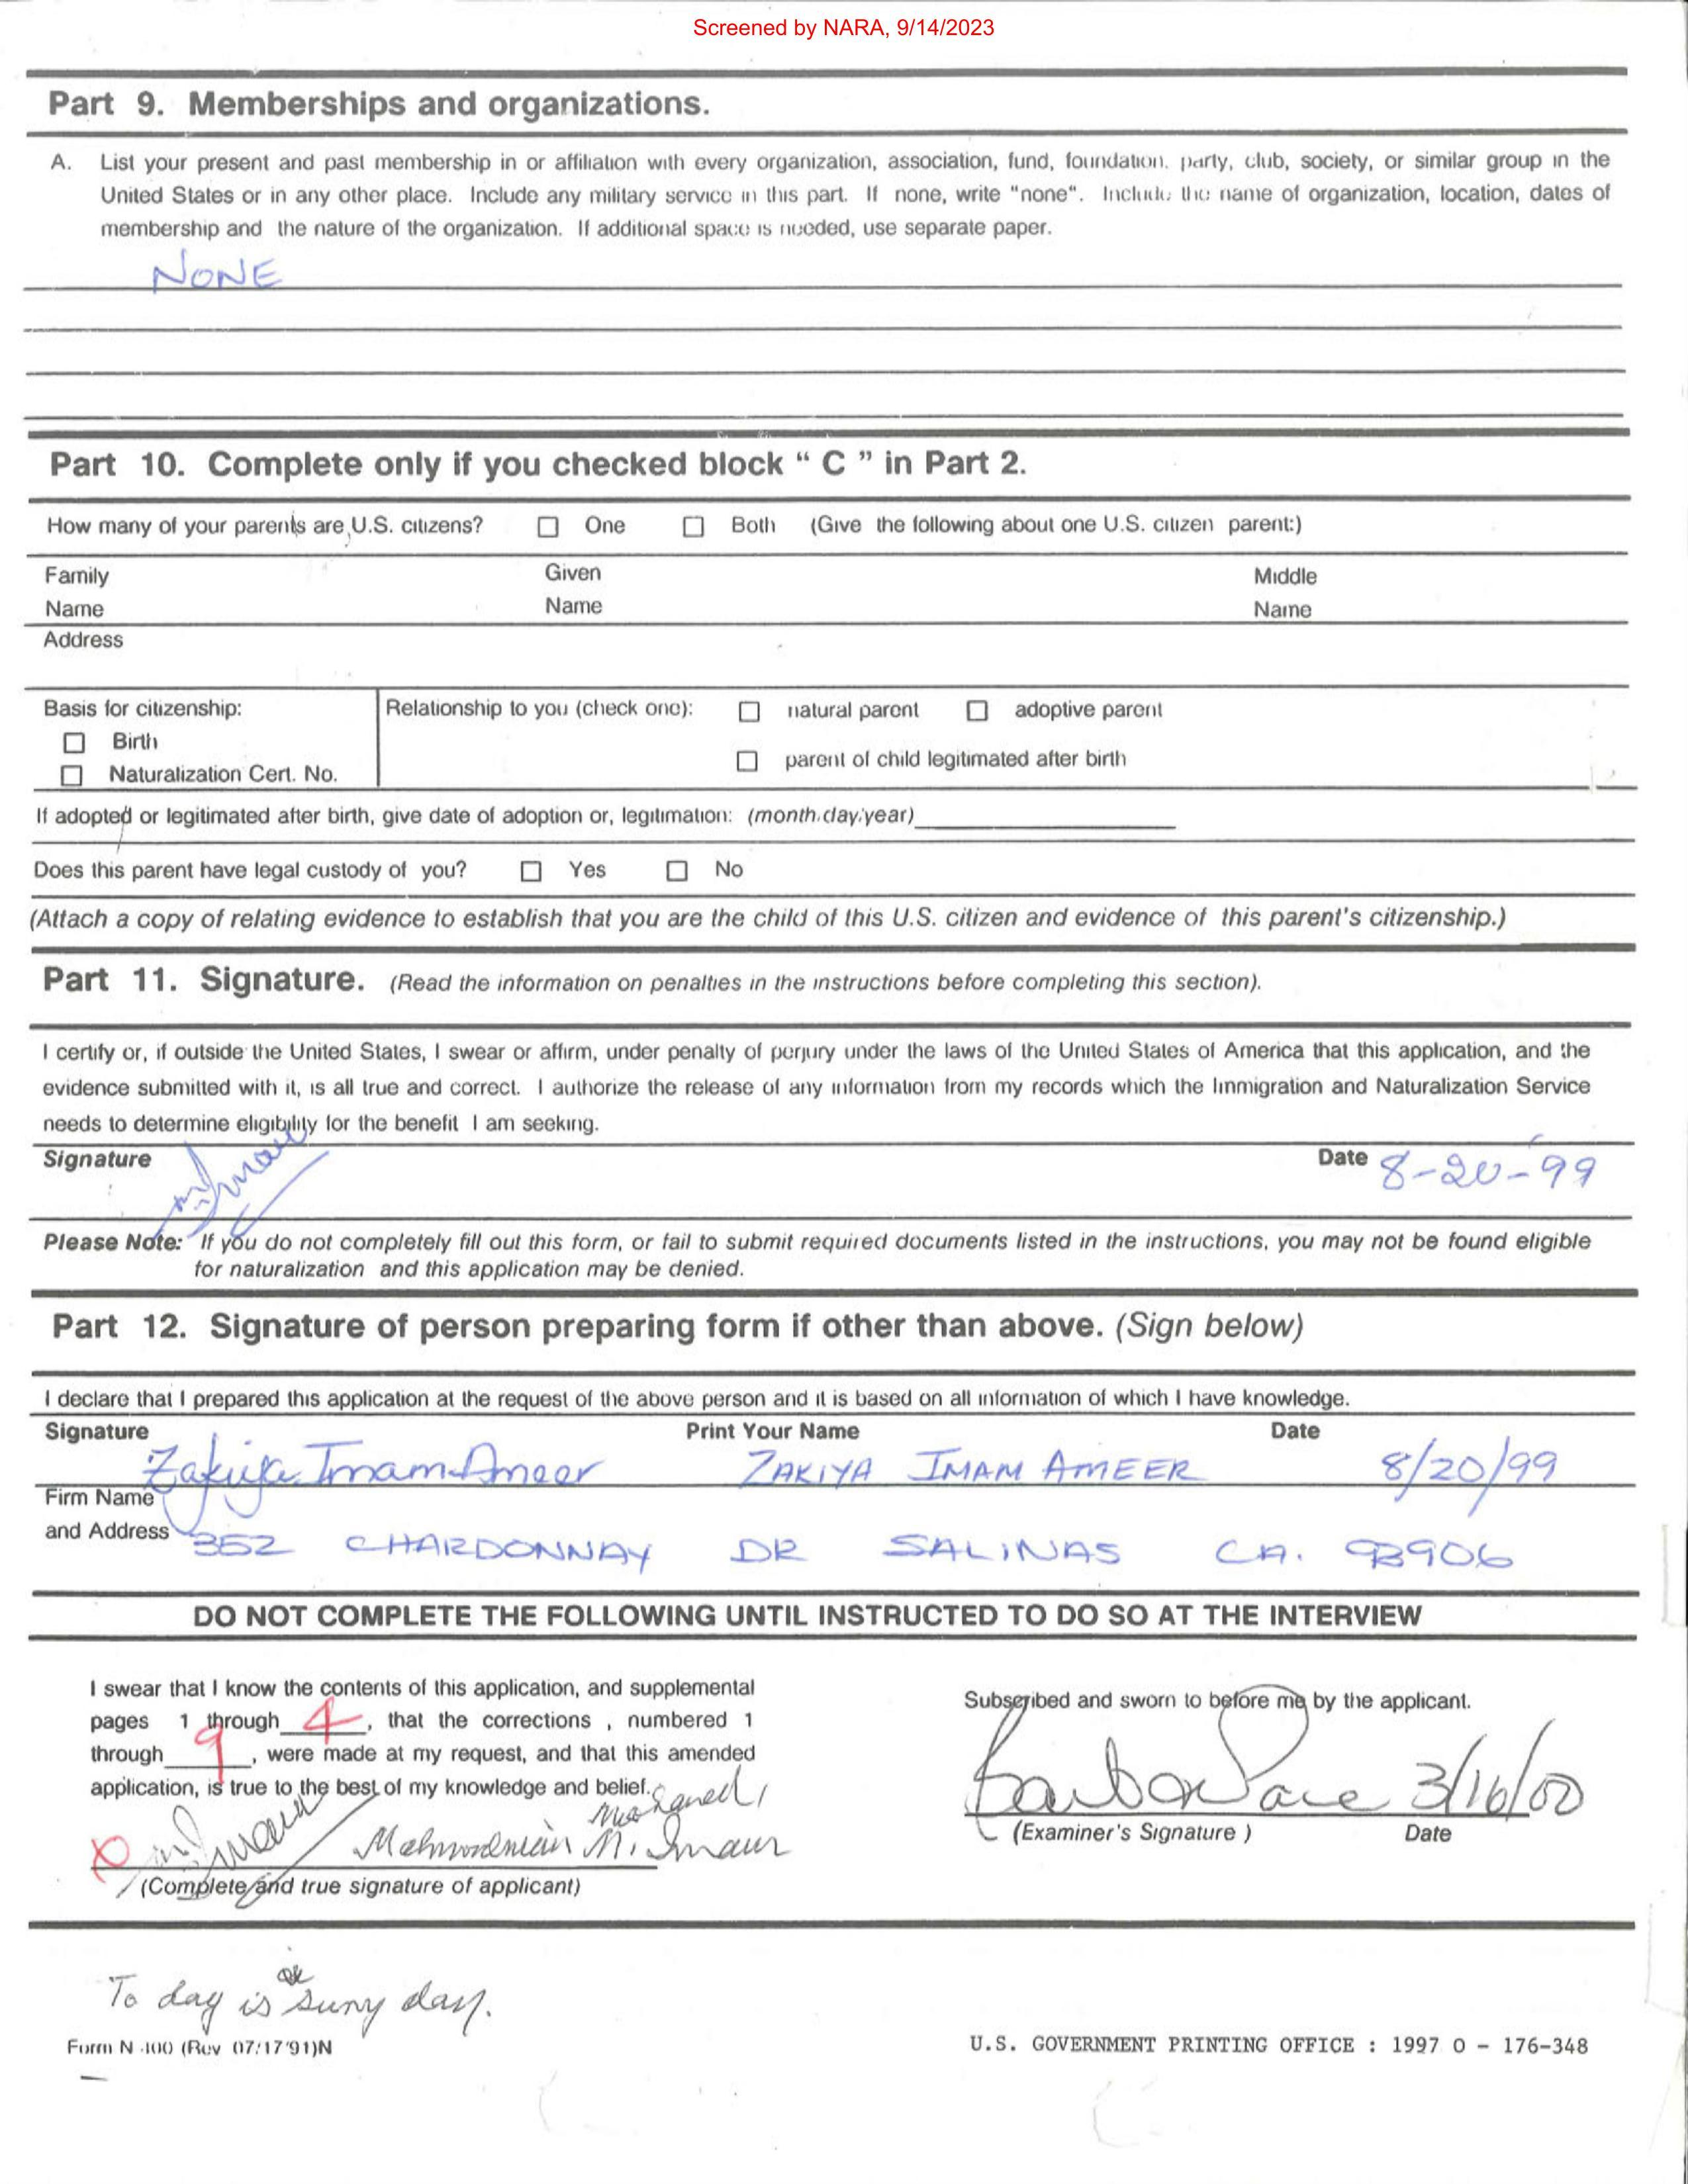 Screened by NARA, 9/14/2023
Part 9. Memberships and organizations.
A. List your present and past membership in or affiliation with every organization, association, fund, foundation, party, club, society, or similar group in the
United States or in any other place. Include any military service in this part. If none, write "none". Include the name of organization, location, dates of
membership and the nature of the organization. If additional space is needed, use separate paper.
NONE
Part 10. Complete only if you checked block " C " in Part 2.
How many of your parents are U.S. citizens? ☐ One ☐ Both (Give the following about one U.S. citizen parent:)
Family Given Middle
Name Name Name
Address
Basis for citizenship: Relationship to you (check one): ☐ natural parent ☐ adoptive parent
☐ Birth
☐ parent of child legitimated after birth
☐ Naturalization Cert. No.
If adopted or legitimated after birth, give date of adoption or, legitimation: (month/day/year)
Does this parent have legal custody of you? ☐ Yes ☐ No
(Attach a copy of relating evidence to establish that you are the child of this U.S. citizen and evidence of this parent's citizenship.)
Part 11. Signature. (Read the information on penalties in the instructions before completing this section).
I certify or, if outside the United States, I swear or affirm, under penalty of perjury under the laws of the United States of America that this application, and the
evidence submitted with it, is all true and correct. I authorize the release of any information from my records which the Immigration and Naturalization Service
needs to determine eligibility for the benefit I am seeking.
Signature Date 8-20-99
Please Note: If you do not completely fill out this form, or fail to submit required documents listed in the instructions, you may not be found eligible
for naturalization and this application may be denied.
Part 12. Signature of person preparing form if other than above. (Sign below)
I declare that I prepared this application at the request of the above person and it is based on all information of which I have knowledge.
Signature Print Your Name Date
Zakiya Imam Ameer ZAKIYA IMAM AMEER 8/20/99
Firm Name
and Address 352 CHARDONNAY DR SALINAS CA. 93906
DO NOT COMPLETE THE FOLLOWING UNTIL INSTRUCTED TO DO SO AT THE INTERVIEW
I swear that I know the contents of this application, and supplemental
pages 1 through 4, that the corrections , numbered 1
through 9, were made at my request, and that this amended
application, is true to the best of my knowledge and belief.
Subscribed and sworn to before me by the applicant.
3/16/00
(Complete and true signature of applicant)
(Examiner's Signature ) Date
To day is suny day.
Form N-400 (Rev 07/17/91)N
U.S. GOVERNMENT PRINTING OFFICE : 1997 O - 176-348